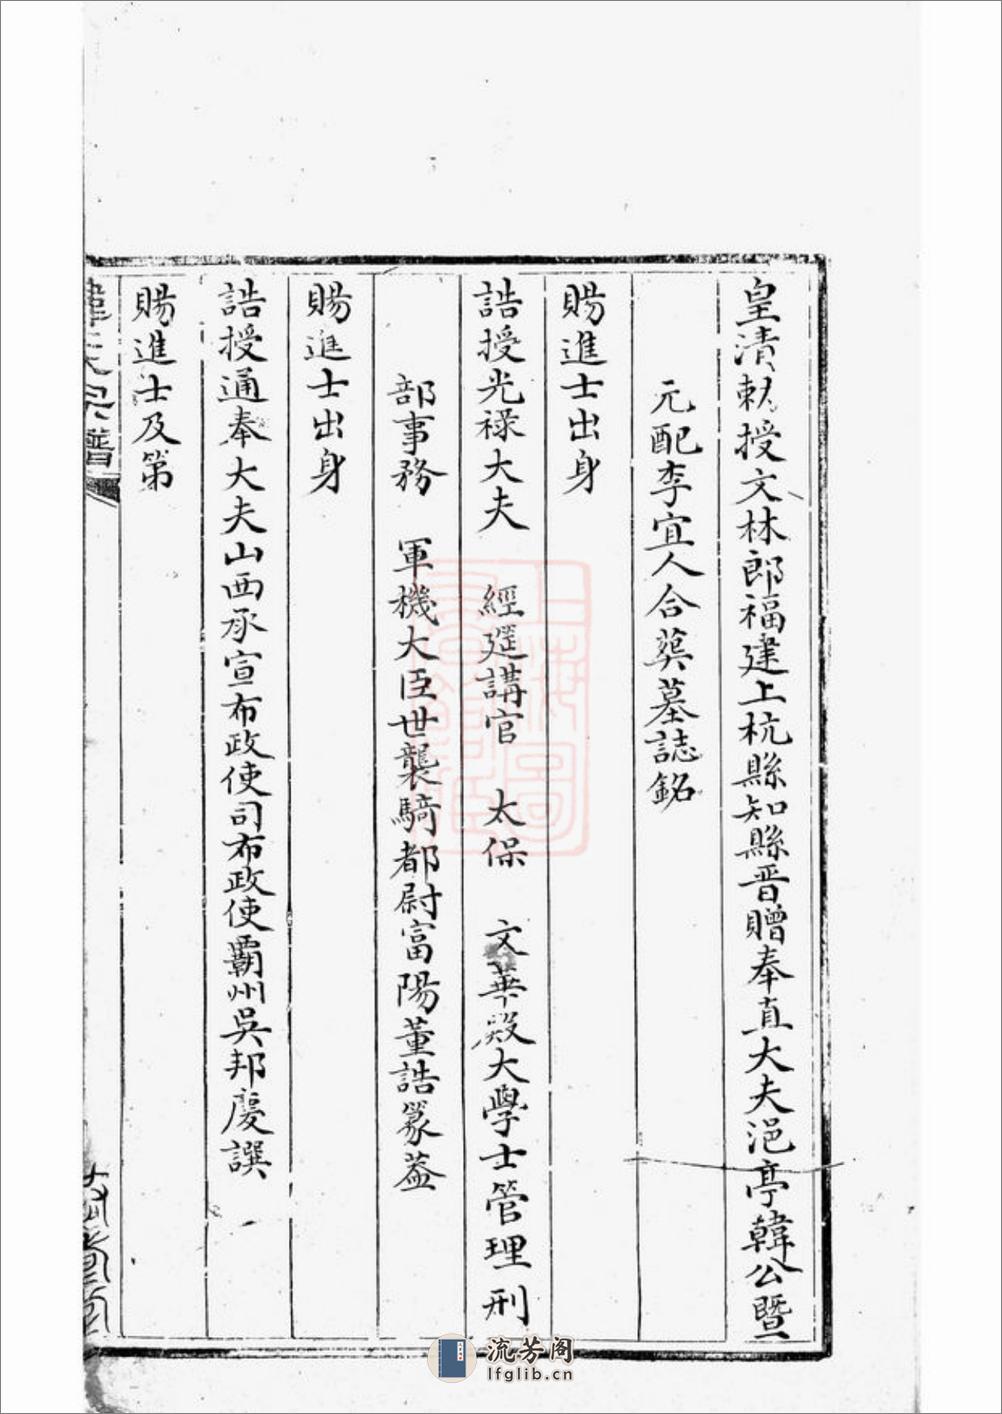 皇清敕授文林郎福建上杭縣知縣晋贈奉直大夫浥亭韓公暨
元配李宜人合葬墓誌銘
賜進士出身
誥授光禄大夫　經筵講官　太保　文華殿大學士管理刑
部事務　軍機大臣世襲騎都尉富陽董誥篆蓋
賜進士出身
誥授通奉大夫山西承宣布政使司布政使霸州吳邦慶譔
賜進士及第
韓氏宗譜
上海圖書館藏
流芳阁
lfglib.cn